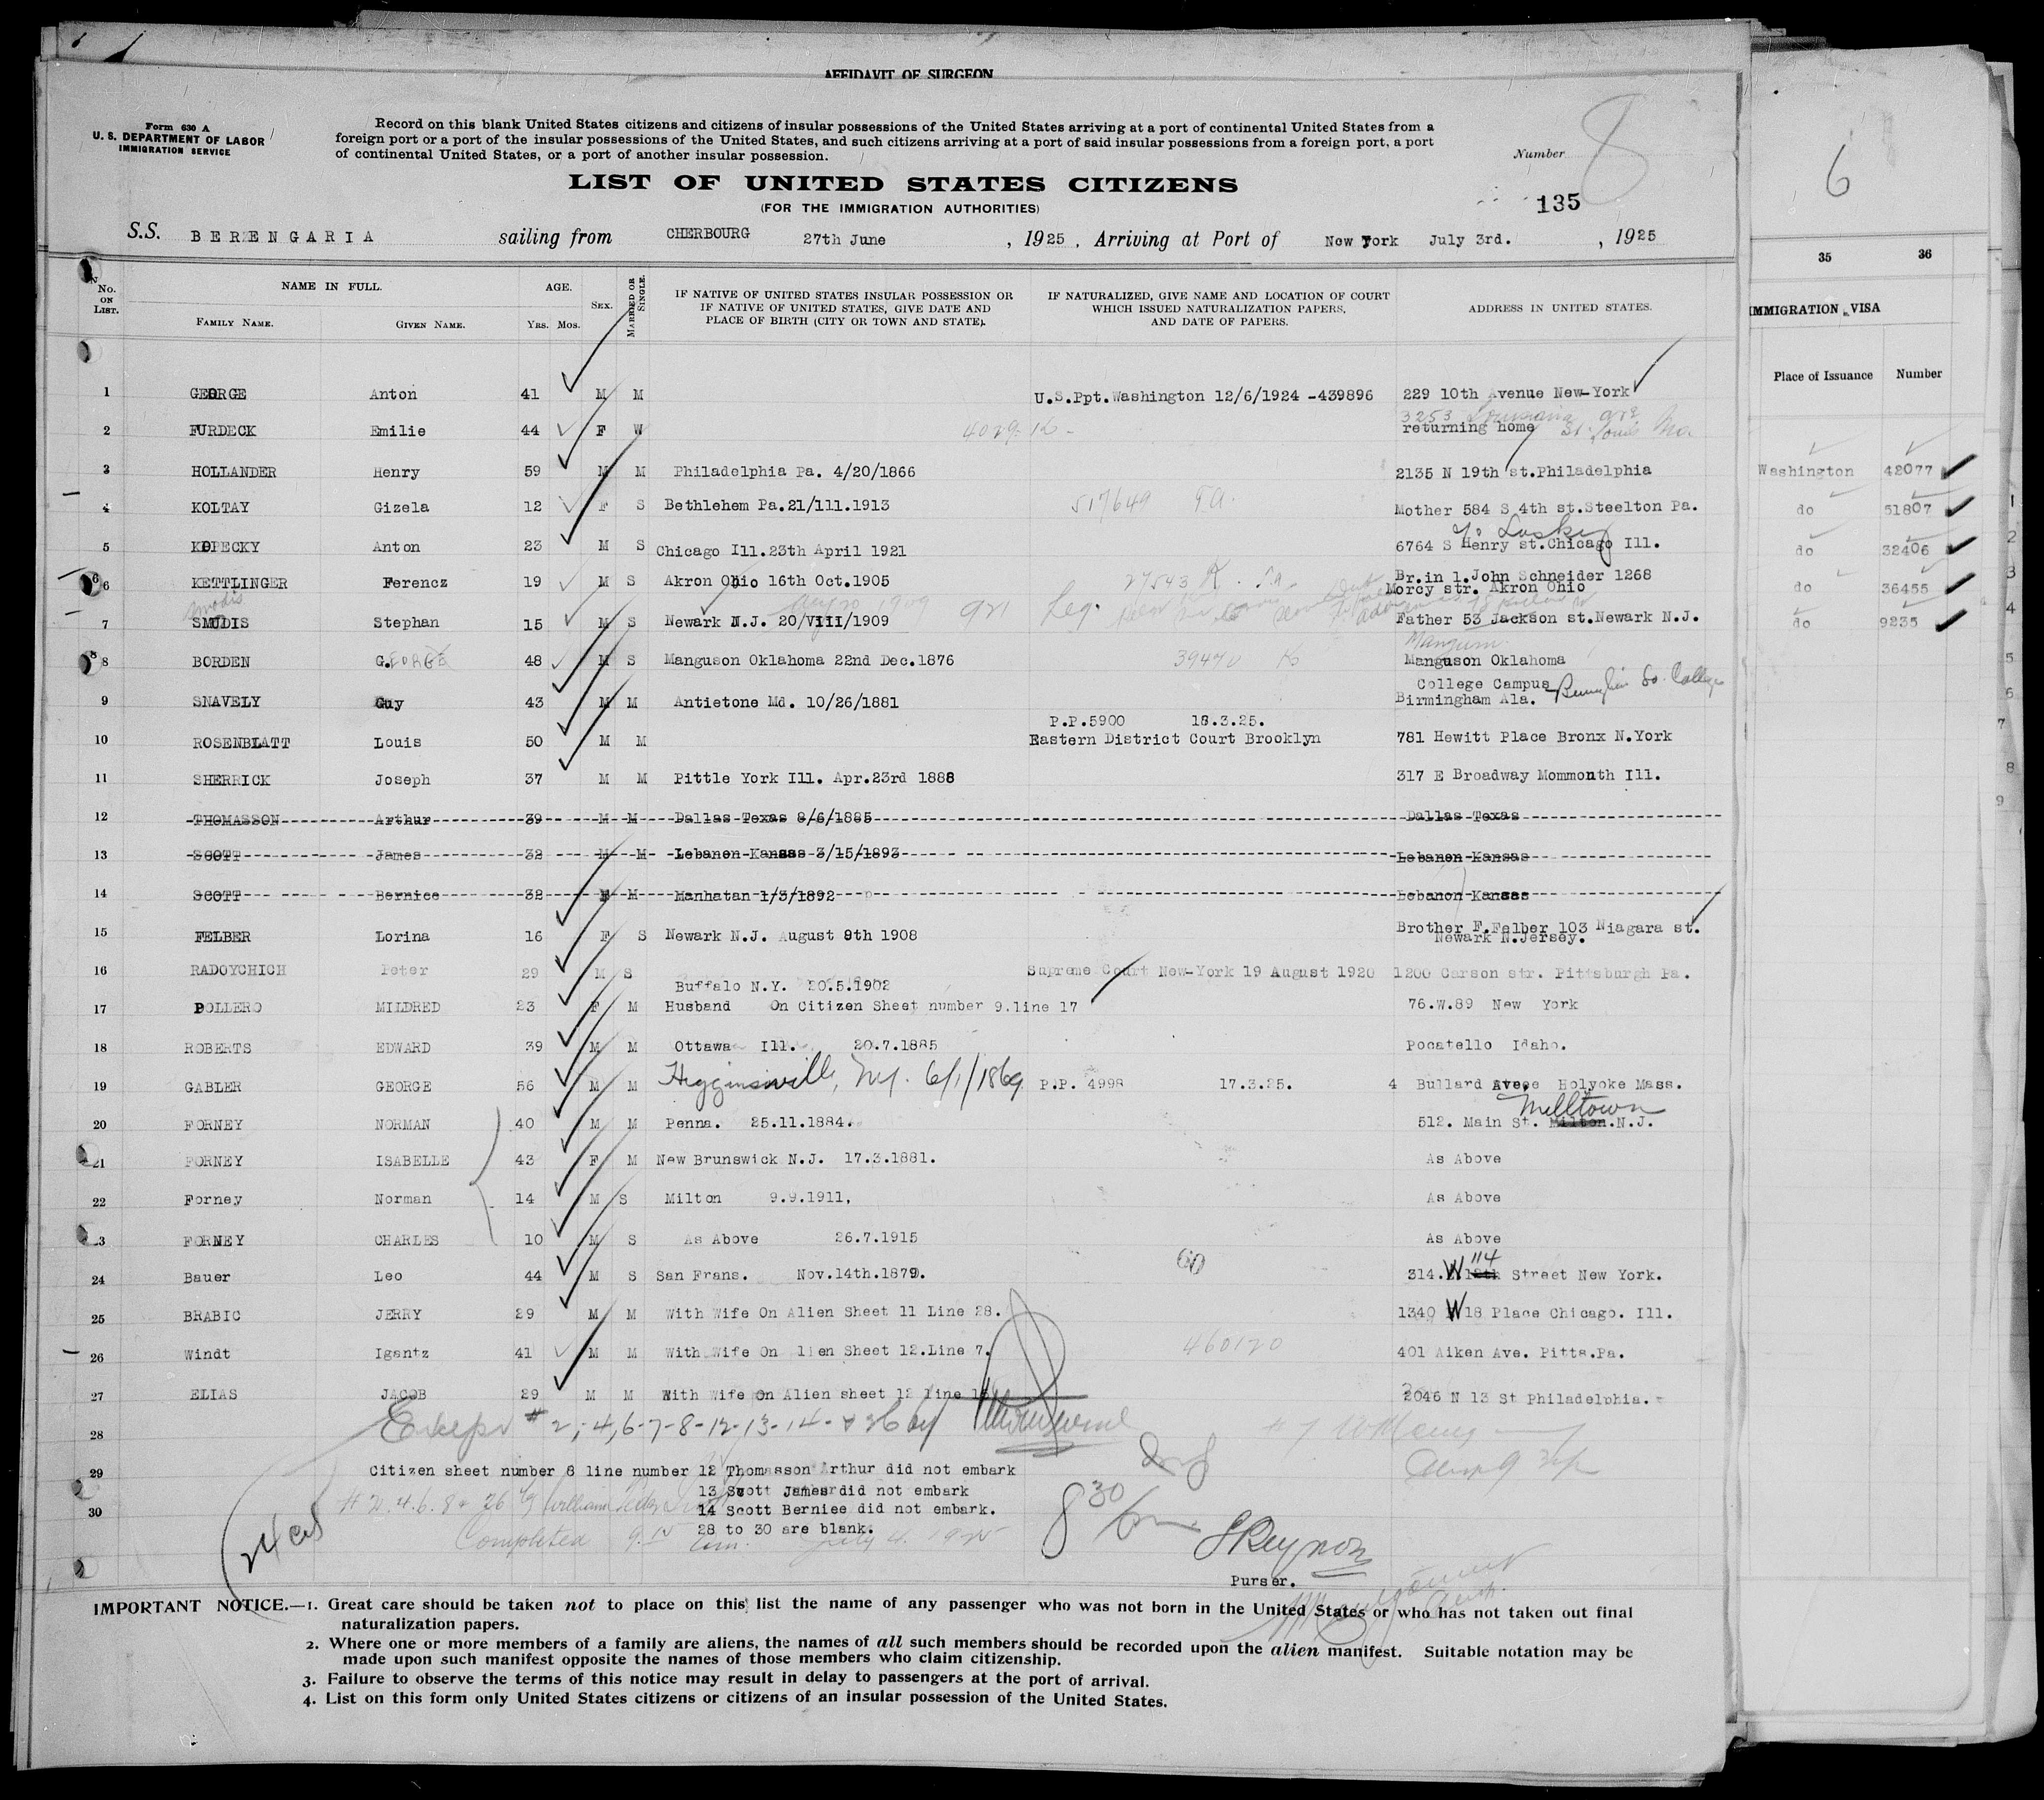 AFFIDAVIT OF SURGEON
Form 630 A
U. S. DEPARTMENT OF LABOR
IMMIGRATION SERVICE
Record on this blank United States citizens and citizens of insular possessions of the United States arriving at a port of continental United States from a
foreign port or a port of the insular possessions of the United States, and such citizens arriving at a port of said insular possessions from a foreign port, a port
of continental United States, or a port of another insular possession.
Number 8
LIST OF UNITED STATES CITIZENS
(FOR THE IMMIGRATION AUTHORITIES)
135
S.S. BERENGARIA sailing from CHERBOURG 27th June , 1925 , Arriving at Port of New York July 3rd. , 1925
No. ON LIST. NAME IN FULL. FAMILY NAME. GIVEN NAME. AGE. YRS. MOS. SEX. MARRIED OR SINGLE. IF NATIVE OF UNITED STATES INSULAR POSSESSION OR IF NATIVE OF UNITED STATES, GIVE DATE AND PLACE OF BIRTH (CITY OR TOWN AND STATE). IF NATURALIZED, GIVE NAME AND LOCATION OF COURT WHICH ISSUED NATURALIZATION PAPERS, AND DATE OF PAPERS. ADDRESS IN UNITED STATES.
1 GEORGE Anton 41 M M U.S.Ppt.Washington 12/6/1924 -439896 229 10th Avenue New-York
3253 Louisiana ave
2 FURDECK Emilie 44 F W returning home St. Louis Mo.
3 HOLLANDER Henry 59 M M Philadelphia Pa. 4/20/1866 2135 N 19th st.Philadelphia
4 KOLTAY Gizela 12 F S Bethlehem Pa.21/111.1913 517649 Mother 584 S 4th st.Steelton Pa.
5 KOPECKY Anton 23 M S Chicago Ill.23th April 1921 6764 S Henry st.Chicago Ill.
6 KETTLINGER Ferencz 19 M S Akron Ohio 16th Oct.1905 27543 Br.in l.John Schneider 1268
Morcy str. Akron Ohio
7 SMUDIS Stephan 15 M S Newark N.J. 20/VIII/1909 921 Leg. Father 53 Jackson st.Newark N.J.
Mangum
8 BORDEN G.EORGE 48 M S Manguson Oklahoma 22nd Dec.1876 Manguson Oklahoma
College Campus
9 SNAVELY Guy 43 M M Antietone Md. 10/26/1881 Birmingham Ala. So. College
P.P.5900 18.3.25.
10 ROSENBLATT Louis 50 M M Eastern District Court Brooklyn 781 Hewitt Place Bronx N.York
11 SHERRICK Joseph 37 M M Pittle York Ill. Apr.23rd 1888 317 E Broadway Mommonth Ill.
12 THOMASSON Arthur 39 M M Dallas Texas 8/6/1885 Dallas Texas
13 SCOTT James 32 M M Lebanen Kansas 3/15/1893 Lebanen Kansas
14 SCOTT Bernice 32 F M Manhatan 1/3/1892 Lebanon Kansas
15 FELBER Lorina 16 F S Newark N.J. August 8th 1908 Brother F.Felber 103 Niagara st.
Newark N.Jersey.
16 RADOYCHICH Peter 29 M S Supreme Court New-York 19 August 1920 1200 Carson str. Pittsburgh Pa.
Buffalo N.Y. 20.5.1902
17 POLLERO MILDRED 23 F M Husband On Citizen Sheet number 9.line 17 76.W.89 New York
18 ROBERTS EDWARD 39 M M Ottawa Ill. 20.7.1885 Pocatello Idaho.
19 GABLER GEORGE 56 M M Higginsville, 6/1/1869 P.P. 4998 17.3.25. 4 Bullard Avece Holyoke Mass.
Milltown
20 FORNEY NORMAN 40 M M Penna. 25.11.1884. 512. Main St. Milton.N.J.
21 FORNEY ISABELLE 43 F M New Brunswick N.J. 17.3.1881. As Above
22 Forney Norman 14 M S Milton 9.9.1911, As Above
23 FORNEY CHARLES 10 M S As Above 26.7.1915 As Above
24 Bauer Leo 44 M S San Frans. Nov.14th.1879. 314.W 114 Street New York.
25 BRABIC JERRY 29 M M With Wife On Alien Sheet 11 Line 28. 1340 W 18 Place Chicago. Ill.
26 Windt Igantz 41 M M With Wife On lien Sheet 12.Line 7. 460120 401 Aiken Ave. Pitts.Pa.
27 ELIAS JACOB 29 M M With wife On Alien sheet 12 line 2046 N 13 St Philadelphia.
28 Except # 2, 4, 6-7-8-12-13-14- & 26 by
29 Citizen sheet number 8 line number 12 Thomasson Arthur did not embark
13 Scott James did not embark
30 14 Scott Berniee did not embark.
28 to 30 are blank.
Completed July 4. 1925
8 30
Purser.
IMPORTANT NOTICE.—1. Great care should be taken not to place on this list the name of any passenger who was not born in the United States or who has not taken out final
naturalization papers.
2. Where one or more members of a family are aliens, the names of all such members should be recorded upon the alien manifest. Suitable notation may be
made upon such manifest opposite the names of those members who claim citizenship.
3. Failure to observe the terms of this notice may result in delay to passengers at the port of arrival.
4. List on this form only United States citizens or citizens of an insular possession of the United States.
6
35 36
IMMIGRATION VISA
Place of Issuance Number
Washington 42077
do 51807
do 32406
do 36455
do 9235
1
2
3
4
5
6
7
8
9